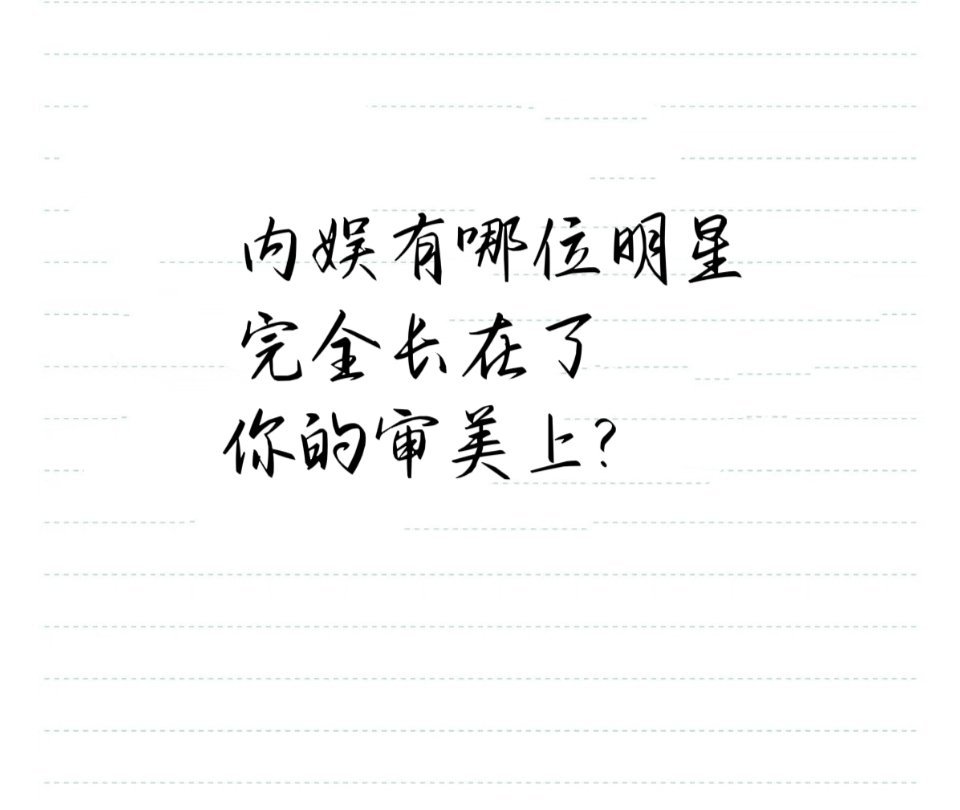 内娱有哪位明星
完全长在了
你的审美上?